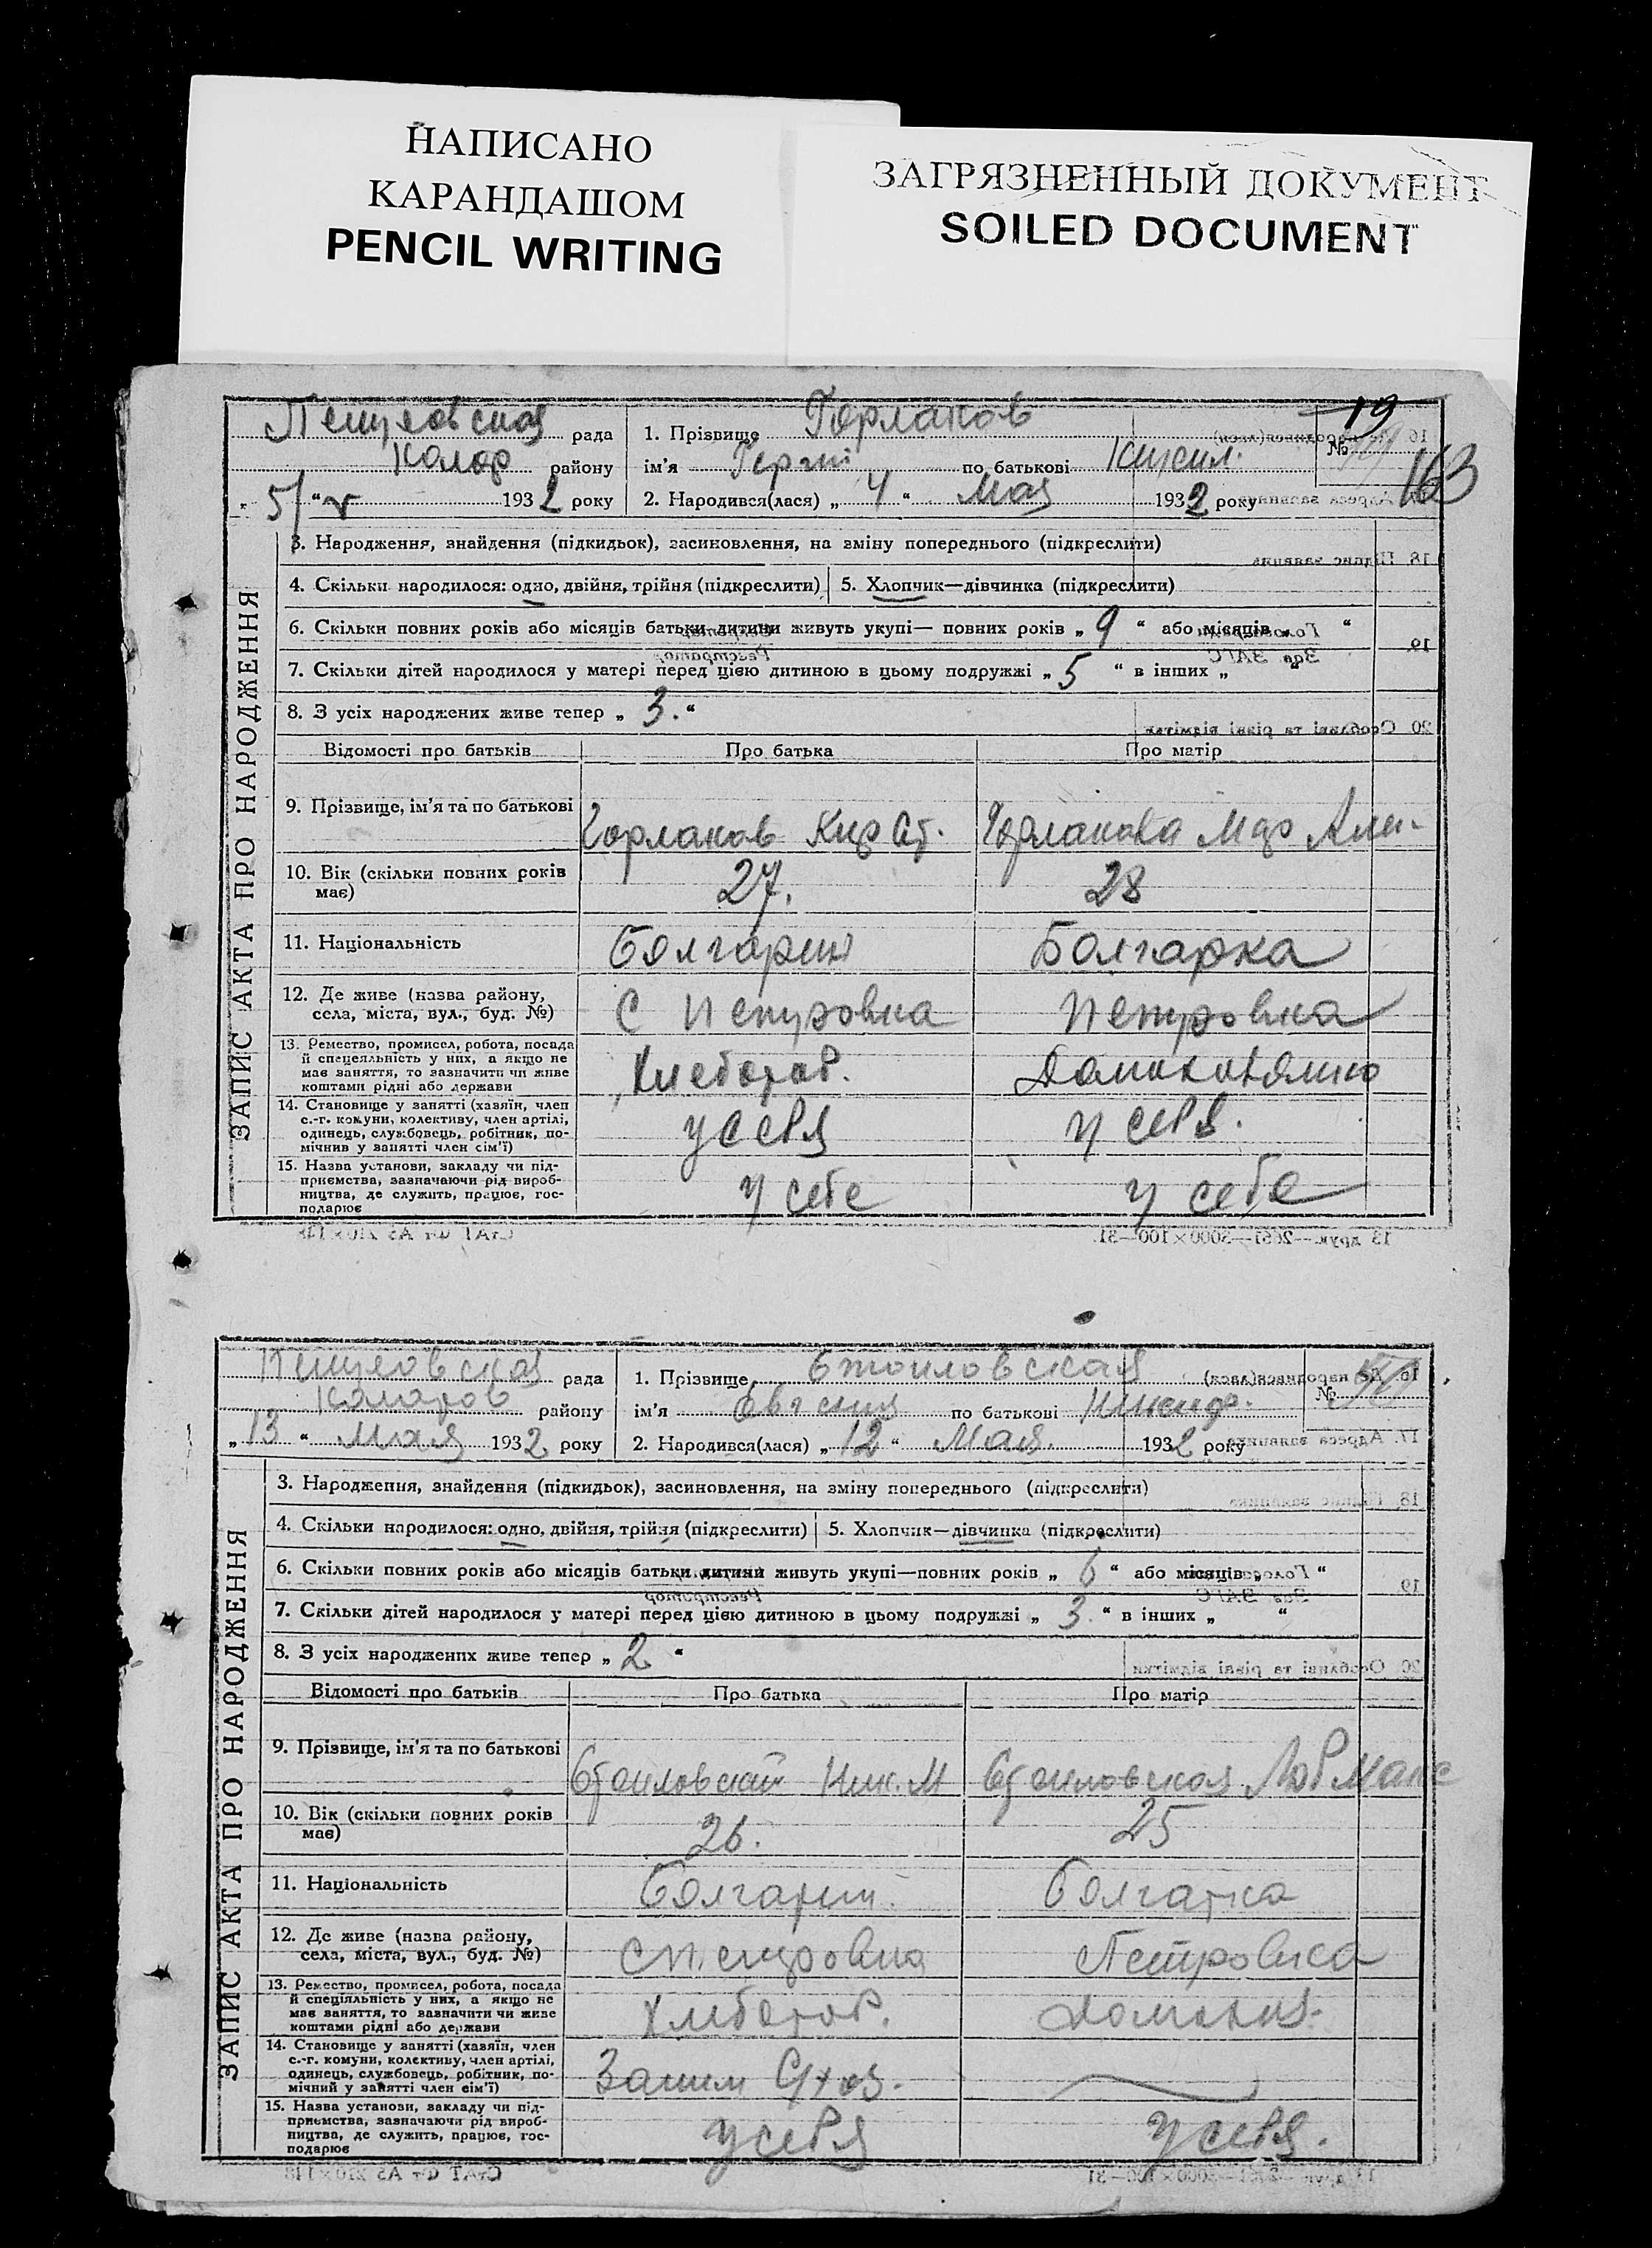 НАПИСАНО
КАРАНДАШОМ
PENCIL WRITING
ЗАГРЯЗНЕННЫЙ ДОКУМЕНТ
SOILED DOCUMENT
рада
района
5/V 1932 року
ЗАПИС АКТА ПРО НАРОДЖЕННЯ
1. Прізвище Горланов
ім'я по батькові
2. Народився(лася) „ 4 “ Мая 1932 року
№ 19
163
3. Народження, знайдення (підкидьок), засиновлення, на зміну попереднього (підкреслити)
4. Скільки народилося: одно, двійня, трійня (підкреслити) 5. Хлопчик—дівчинка (підкреслити)
6. Скільки повних років або місяців батьки дитини живуть укупі— повних років „ 9 “ або місяців „ “
7. Скільки дітей народилося у матері перед цією дитиною в цьому подружжі „ 5 “ в інших „ “
8. З усіх народжених живе тепер „ 3. “
Відомості про батьків Про батька Про матір
9. Прізвище, ім'я та по батькові Горланов Кир Ст. Горланова Мар
10. Вік (скільки повних років має) 27. 28
11. Національність Болгарин Болгарка
12. Де живе (назва району, села, міста, вул., буд. №) С Петровка Петровка
13. Ремество, промисел, робота, посада й спецеяльність у них, а якщо не має заняття, то зазначити чи живе коштами рідні або держави Хлебороб.
14. Становище у занятті (хазяїн, член с.-г. комуни, колективу, член артілі, одинець, службовець, робітник, помічнив у занятті член сім'ї) у себя у себя.
15. Назва установи, закладу чи підприємства, зазначаючи рід виробництва, де служить, працює, господарює у себе у себе
рада
Коларов району
„ 13 “ Мая 1932 року
ЗАПИС АКТА ПРО НАРОДЖЕННЯ
1. Прізвище Стоиловская
ім'я Евгения по батькові
2. Народився(лася) „ 12 “ Мая. 1932 року
№
3. Народження, знайдення (підкидьок), засиновлення, на зміну попереднього (підкреслити)
4. Скільки народилося: одно, двійня, трійня (підкреслити) 5. Хлопчик—дівчинка (підкреслити)
6. Скільки повних років або місяців батьки дитини живуть укупі—повних років „ 6 “ або місяців „ “
7. Скільки дітей народилося у матері перед цією дитиною в цьому подружжі „ 3. “ в інших „ “
8. З усіх народжених живе тепер „ 2 “
Відомості про батьків Про батька Про матір
9. Прізвище, ім'я та по батькові Стоиловский Ник. М Стоиловская Люб
10. Вік (скільки повних років має) 26. 25
11. Національність Болгарин. Болгарка
12. Де живе (назва району, села, міста, вул., буд. №) с Петровка Петровка
13. Ремество, промисел, робота, посада й спеціяльність у них, а якщо не має заняття, то зазначити чи живе коштами рідні або держави Хлебороб.
14. Становище у занятті (хазяїн, член с.-г. комуни, колективу, член артілі, одинець, службовець, робітник, помічний у занятті член сім'ї)
15. Назва установи, закладу чи підприємства, зазначаючи рід виробництва, де служить, працює, господарює у себя у себя.